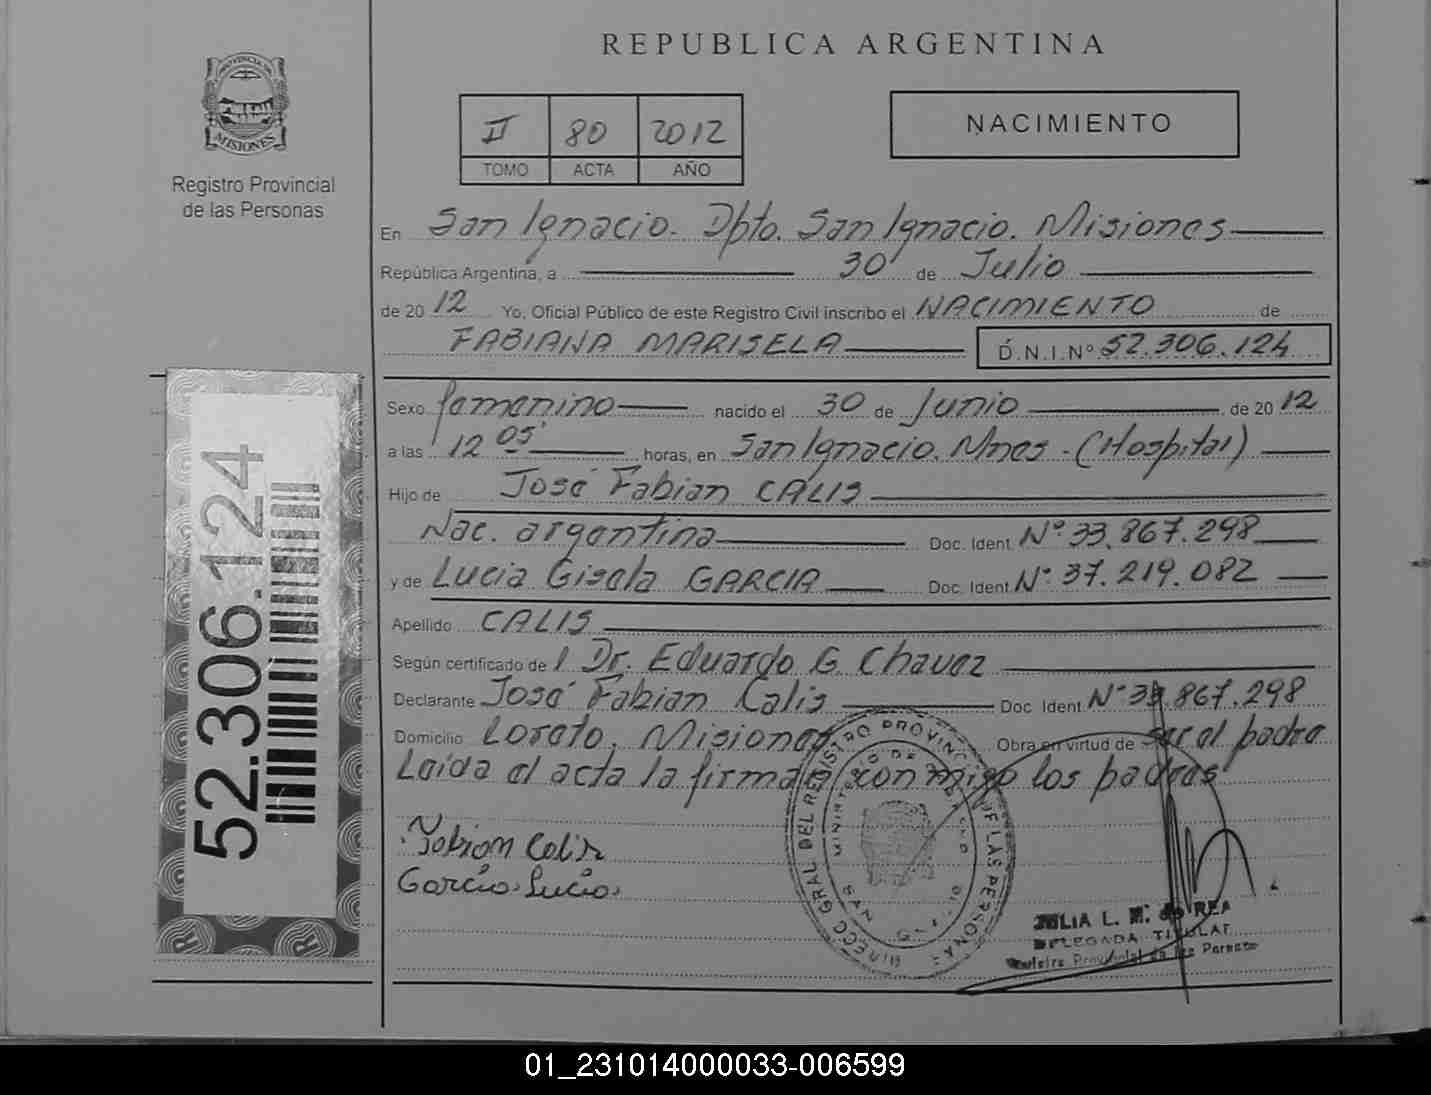 REPUBLICA ARGENTINA
PROVINCIA DE
MISIONES
Registro Provincial
de las Personas
II 80 2012
TOMO ACTA AÑO
NACIMIENTO
En San Ignacio. Dpto. San Ignacio. Misiones
República Argentina, a 30 de Julio
de 2012 Yo, Oficial Público de este Registro Civil inscribo el NACIMIENTO de
FABIANA MARISELA D.N.I.Nº 52.306.124
Sexo femenino nacido el 30 de Junio de 2012
a las 12 05' horas, en San Ignacio. Mnes - (Hospital)
Hijo de José Fabian CALIS
Nac. argentina Doc. Ident. Nº 33.867.298
y de Lucia Gisela GARCIA Doc. Ident. Nº 37.219.082
Apellido CALIS
Según certificado de l Dr. Eduardo G. Chavez
Declarante José Fabian Calis Doc. Ident. Nº 33.867.298
Domicilio Loreto, Misiones Obra en virtud de ser el padre
Leída el acta la firman conmigo los padres
Fabian Calis
Garcia Lucia
DIRECC GRAL DEL REGISTRO PROVINCIAL DE LAS PERSONAS
MINISTERIO DE GOBIERNO
JULIA L. M. de REA
DELEGADA TITULAR
52.306.124
01_231014000033-006599